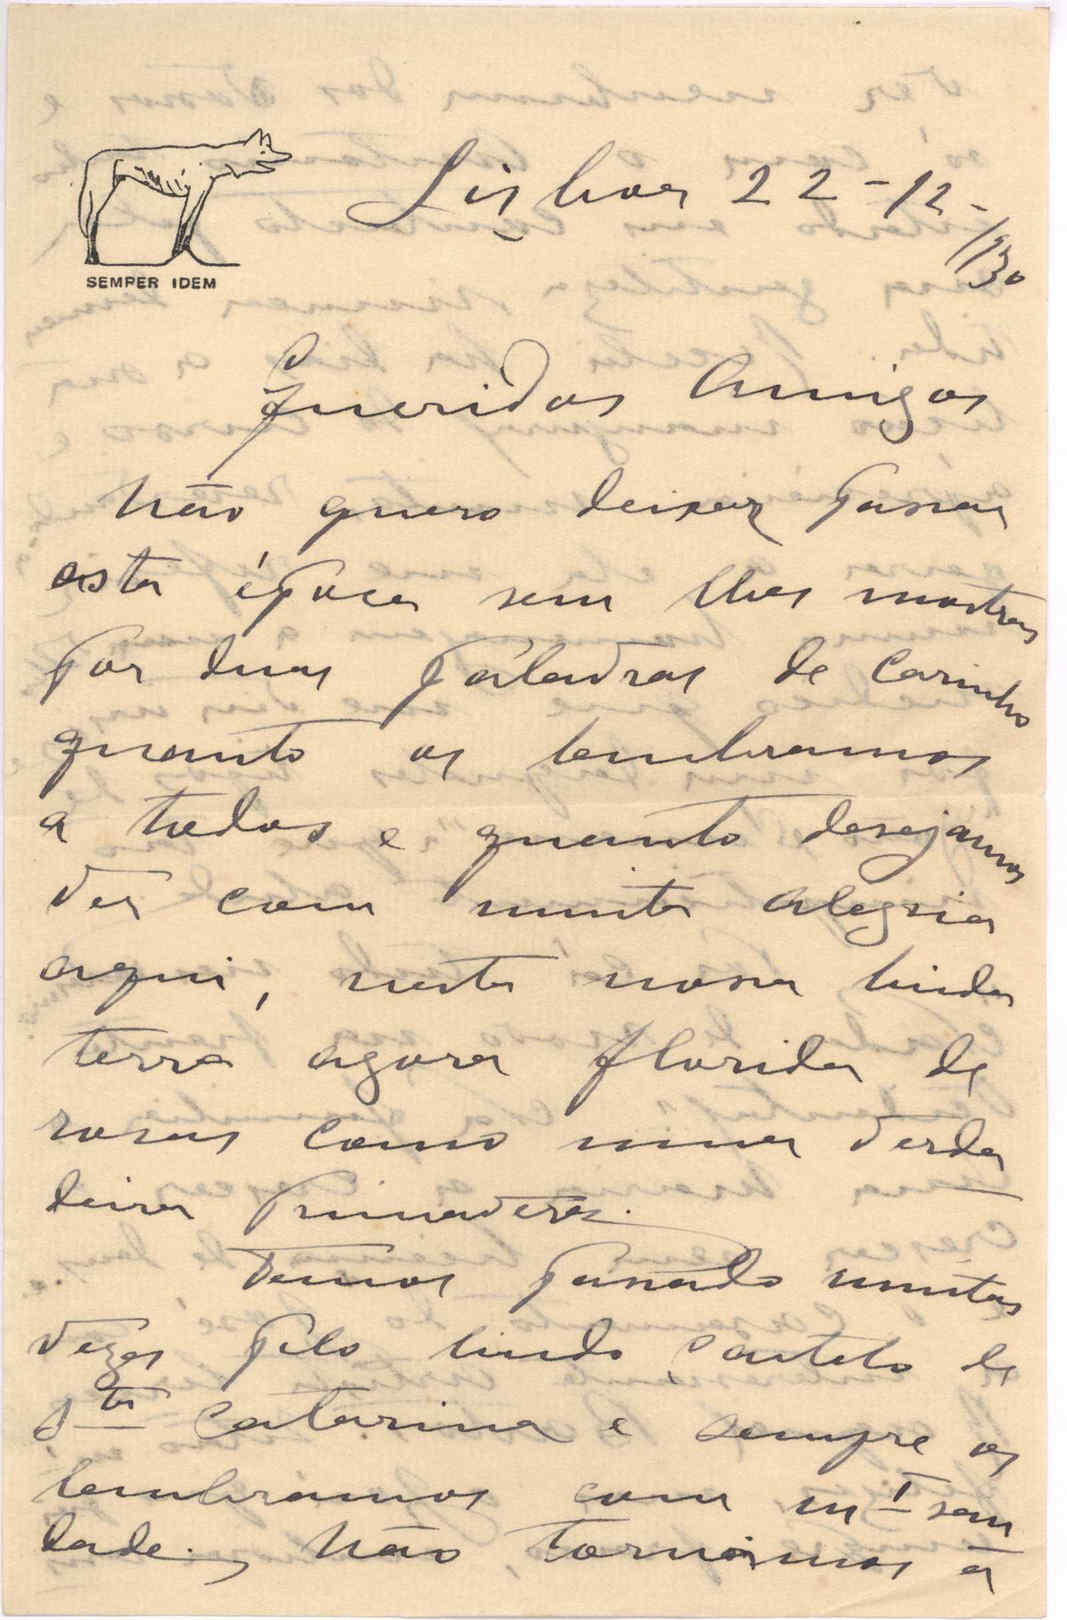 SEMPER IDEM
Lisboa 22-12-
1930
Queridos Amigos
Não quero deixar passar
esta época sem lhes mostrar
por duas pálavras de carinho
quanto os lembramos
a todos e quanto desejamos
ver com muita alegria
aqui, nesta nossa linda
terra agora florida de
rosas como numa verda
deira Primavera.
Temos passado muitas
vezes pelo lindo Castelo de
Sta Catarina e sempre os
lembrámos com mt sau
dade. Não tornámos a